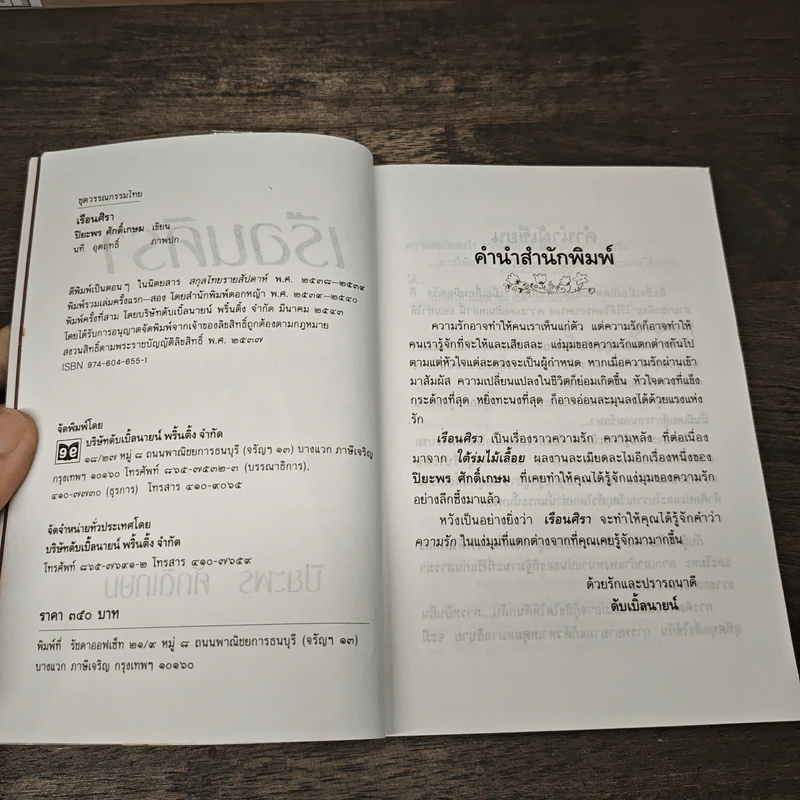 ชุดวรรณกรรมไทย
เรือนศิรา
ปิยะพร ศักดิ์เกษม เขียน
นที อุตฤทธิ์ ภาพปก
ตีพิมพ์เป็นตอนๆ ในนิตยสาร สกุลไทยรายสัปดาห์ พ.ศ. ๒๕๓๘-๒๕๓๙
พิมพ์รวมเล่มครั้งแรก-สอง โดยสำนักพิมพ์ดอกหญ้า พ.ศ. ๒๕๓๙-๒๕๔๐
พิมพ์ครั้งที่สาม โดยบริษัทดับเบิ้ลนายน์ พริ้นติ้ง จำกัด มีนาคม ๒๕๔๓
โดยได้รับการอนุญาตจัดพิมพ์จากเจ้าของลิขสิทธิ์ถูกต้องตามกฎหมาย
สงวนสิทธิ์ตามพระราชบัญญัติลิขสิทธิ์ พ.ศ. ๒๕๓๗
ISBN 974-604-655-1
จัดพิมพ์โดย
บริษัทดับเบิ้ลนายน์ พริ้นติ้ง จำกัด
๑๘/๒๗ หมู่ ๘ ถนนพาณิชยการธนบุรี (จรัญฯ ๑๓) บางแวก ภาษีเจริญ
กรุงเทพฯ ๑๐๑๖๐ โทรศัพท์ ๘๖๕-๗๕๓๒-๓ (บรรณาธิการ),
๔๑๐-๗๗๓๐ (ธุรการ) โทรสาร ๔๑๐-๙๐๖๕
จัดจำหน่ายทั่วประเทศโดย
บริษัทดับเบิ้ลนายน์ พริ้นติ้ง จำกัด
โทรศัพท์ ๘๖๕-๗๖๙๑-๒ โทรสาร ๔๑๐-๗๖๕๙
ราคา ๓๔๐ บาท
พิมพ์ที่ รัชดาออฟเซ็ท ๒๑/๙ หมู่ ๘ ถนนพาณิชยการธนบุรี (จรัญฯ ๑๓)
บางแวก ภาษีเจริญ กรุงเทพฯ ๑๐๑๖๐
คำนำสำนักพิมพ์
ความรักอาจทำให้คนเราเห็นแก่ตัว แต่ความรักก็อาจทำให้
คนเรารู้จักที่จะให้และเสียสละ แง่มุมของความรักแตกต่างกันไป
ตามแต่หัวใจแต่ละดวงจะเป็นผู้กำหนด หากเมื่อความรักผ่านเข้า
มาสัมผัส ความเปลี่ยนแปลงในชีวิตก็ย่อมเกิดขึ้น หัวใจดวงที่แข็ง
กระด้างที่สุด หยิ่งทะนงที่สุด ก็อาจอ่อนละมุนลงได้ด้วยแรงแห่ง
รัก
เรือนศิรา เป็นเรื่องราวความรัก ความหลัง ที่ต่อเนื่อง
มาจาก ใต้ร่มไม้เลื้อย ผลงานละเมียดละไมอีกเรื่องหนึ่งของ
ปิยะพร ศักดิ์เกษม ที่เคยทำให้คุณได้รู้จักแง่มุมของความรัก
อย่างลึกซึ้งมาแล้ว
หวังเป็นอย่างยิ่งว่า เรือนศิรา จะทำให้คุณได้รู้จักคำว่า
ความรัก ในแง่มุมที่แตกต่างจากที่คุณเคยรู้จักมามากขึ้น
ด้วยรักและปรารถนาดี
ดับเบิ้ลนายน์